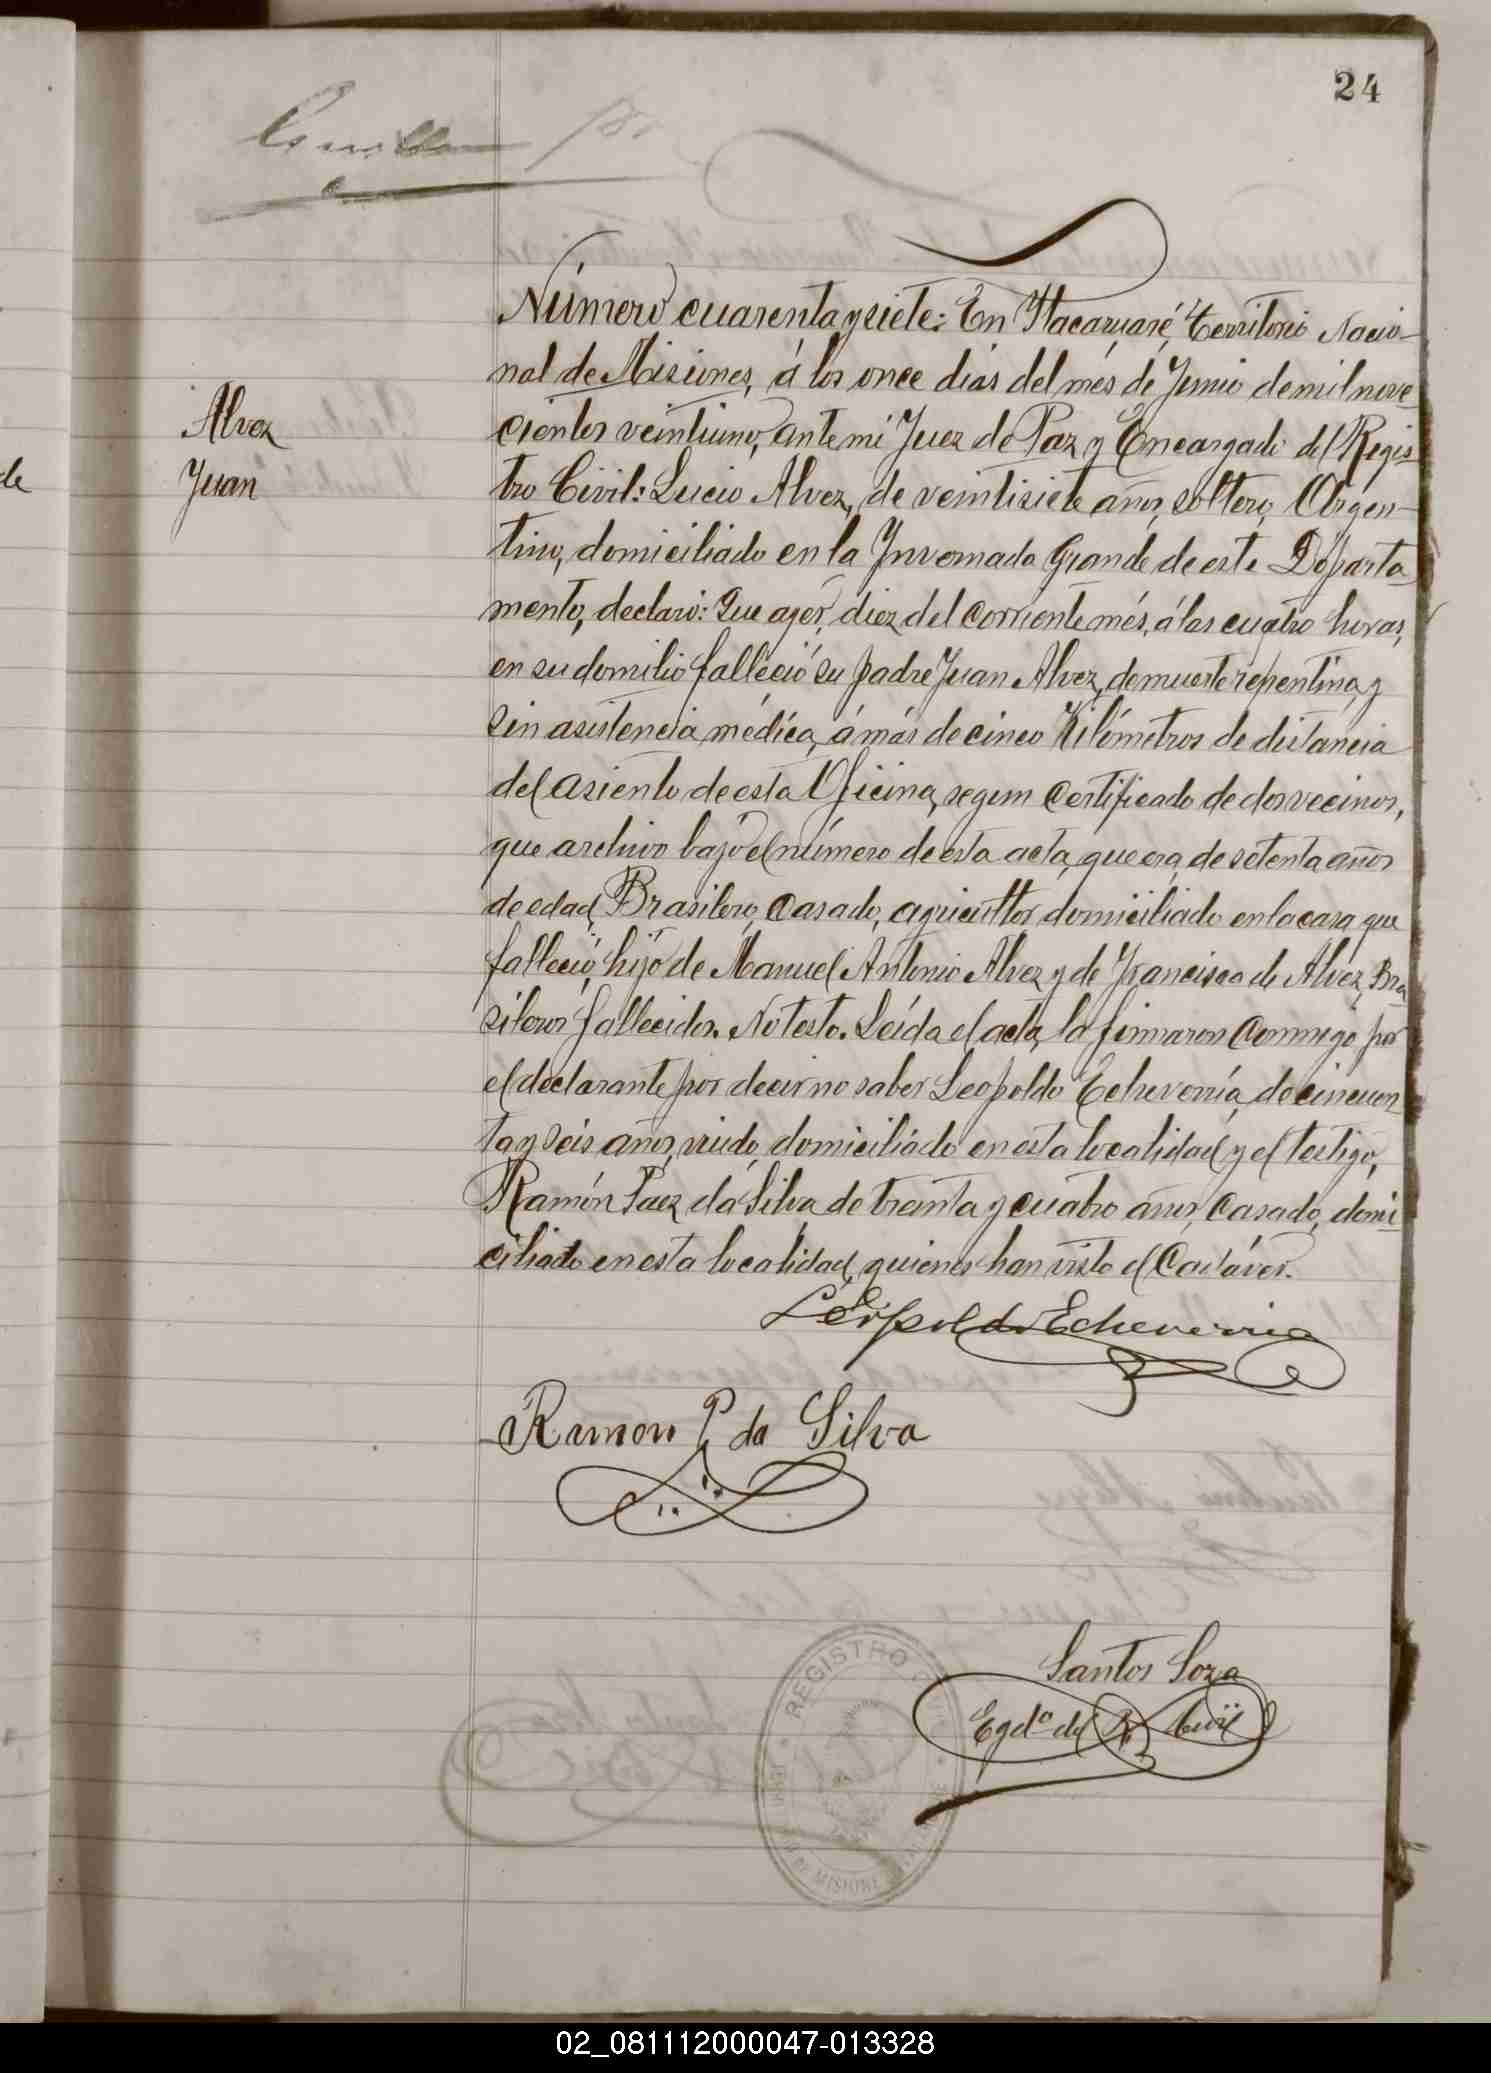 24
Alvez
Juan
de
Número cuarenta y siete: En Itacaruaré, Territorio Nacio-
nal de Misiones, á los once dias del més de Junio de mil nove-
cientos veintiuno, ante mi Juez de Paz y Encargado del Regis-
tro Civil: Lucio Alvez, de veintisiete años, soltero, Argen-
tino, domiciliado en la Invernada Grande de este Departa-
mento, declaró: Que ayer, diez del corriente més, á las cuatro horas,
en su domilio falleció su padre Juan Alvez, de muerte repentina, y
sin asistencia médica, á más de cinco Kilómetros de distancia
del asiento de esta Oficina, segun certificado de dos vecinos,
que archivo bajo el número de esta acta, que era, de setenta años
de edad, Brasilero, Casado, agricultor, domiciliado en la casa que
falleció, hijo de Manuel Antonio Alvez y de Francisca de Alvez, Bra-
sileros fallecidos. No testo. Leída el acta, la firmaron conmigo por
el declarante por decir no saber Leopoldo Echeverría, de cincuen-
ta y seis años, viudo, domiciliado en esta localidad y el testigo,
Ramón Paez da Silva de treinta y cuatro años, Casado, domi-
ciliado en esta localidad, quienes han visto el Cadáver.
Leopoldo Echeverria
Ramon P. da Silva
Santos Soza
Egdo del R. Civil
REGISTRO
MISIONE
02_081112000047-013328